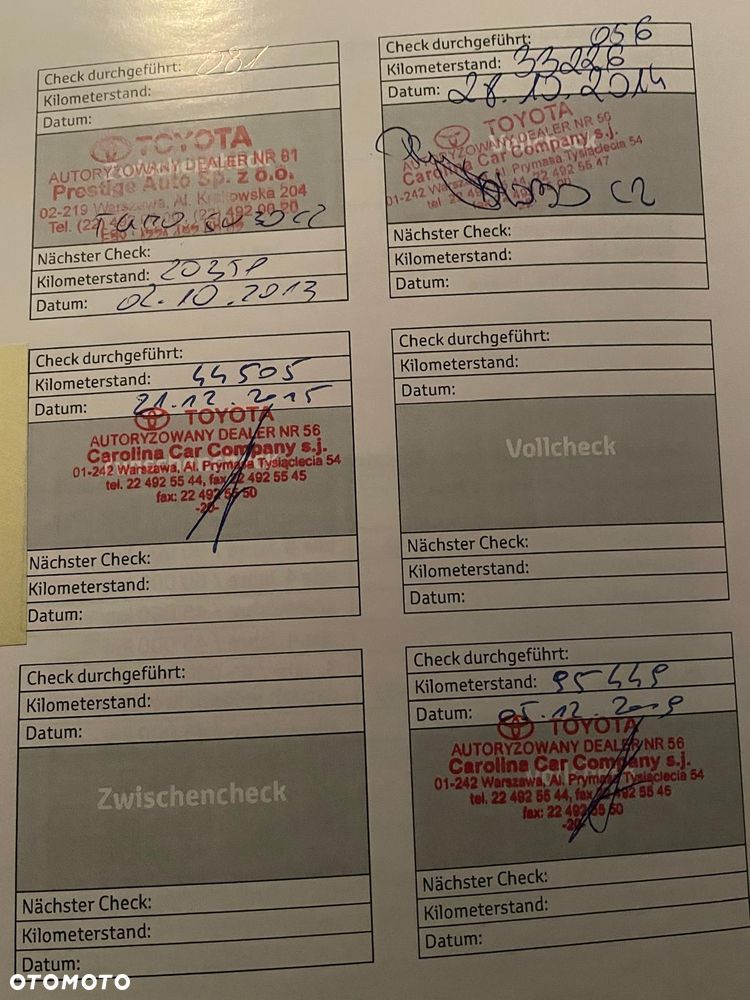 Check durchgeführt: 081
Kilometerstand:
Datum:
TOYOTA
AUTORYZOWANY DEALER NR 81
Prestige Auto Sp. z o.o.
02-219 Warszawa, Al. Krakowska 204
Nächster Check:
Kilometerstand:
Datum: 02.10.2013
Check durchgeführt: 056
Kilometerstand: 33226
Datum: 28.10.2014
TOYOTA
AUTORYZOWANY DEALER NR 56
Carolina Car Company s.j.
01-242 Warszawa, Al. Prymasa Tysiąclecia 54
Nächster Check:
Kilometerstand:
Datum:
Check durchgeführt:
Kilometerstand: 44505
Datum: 21.12.2015
TOYOTA
AUTORYZOWANY DEALER NR 56
Carolina Car Company s.j.
01-242 Warszawa, Al. Prymasa Tysiąclecia 54
tel. 22 492 55 44, fax 22 492 55 45
fax: 22 492 55 50
-20-
Nächster Check:
Kilometerstand:
Datum:
Check durchgeführt:
Kilometerstand:
Datum:
Vollcheck
Nächster Check:
Kilometerstand:
Datum:
Check durchgeführt:
Kilometerstand:
Datum:
Zwischencheck
Nächster Check:
Kilometerstand:
Datum:
Check durchgeführt:
Kilometerstand: 95449
Datum: 05.12.2019
TOYOTA
AUTORYZOWANY DEALER NR 56
Carolina Car Company s.j.
01-242 Warszawa, Al. Prymasa Tysiąclecia 54
tel. 22 492 55 44, fax 22 492 55 45
fax: 22 492 55 50
-20-
Nächster Check:
Kilometerstand:
Datum:
OTOMOTO